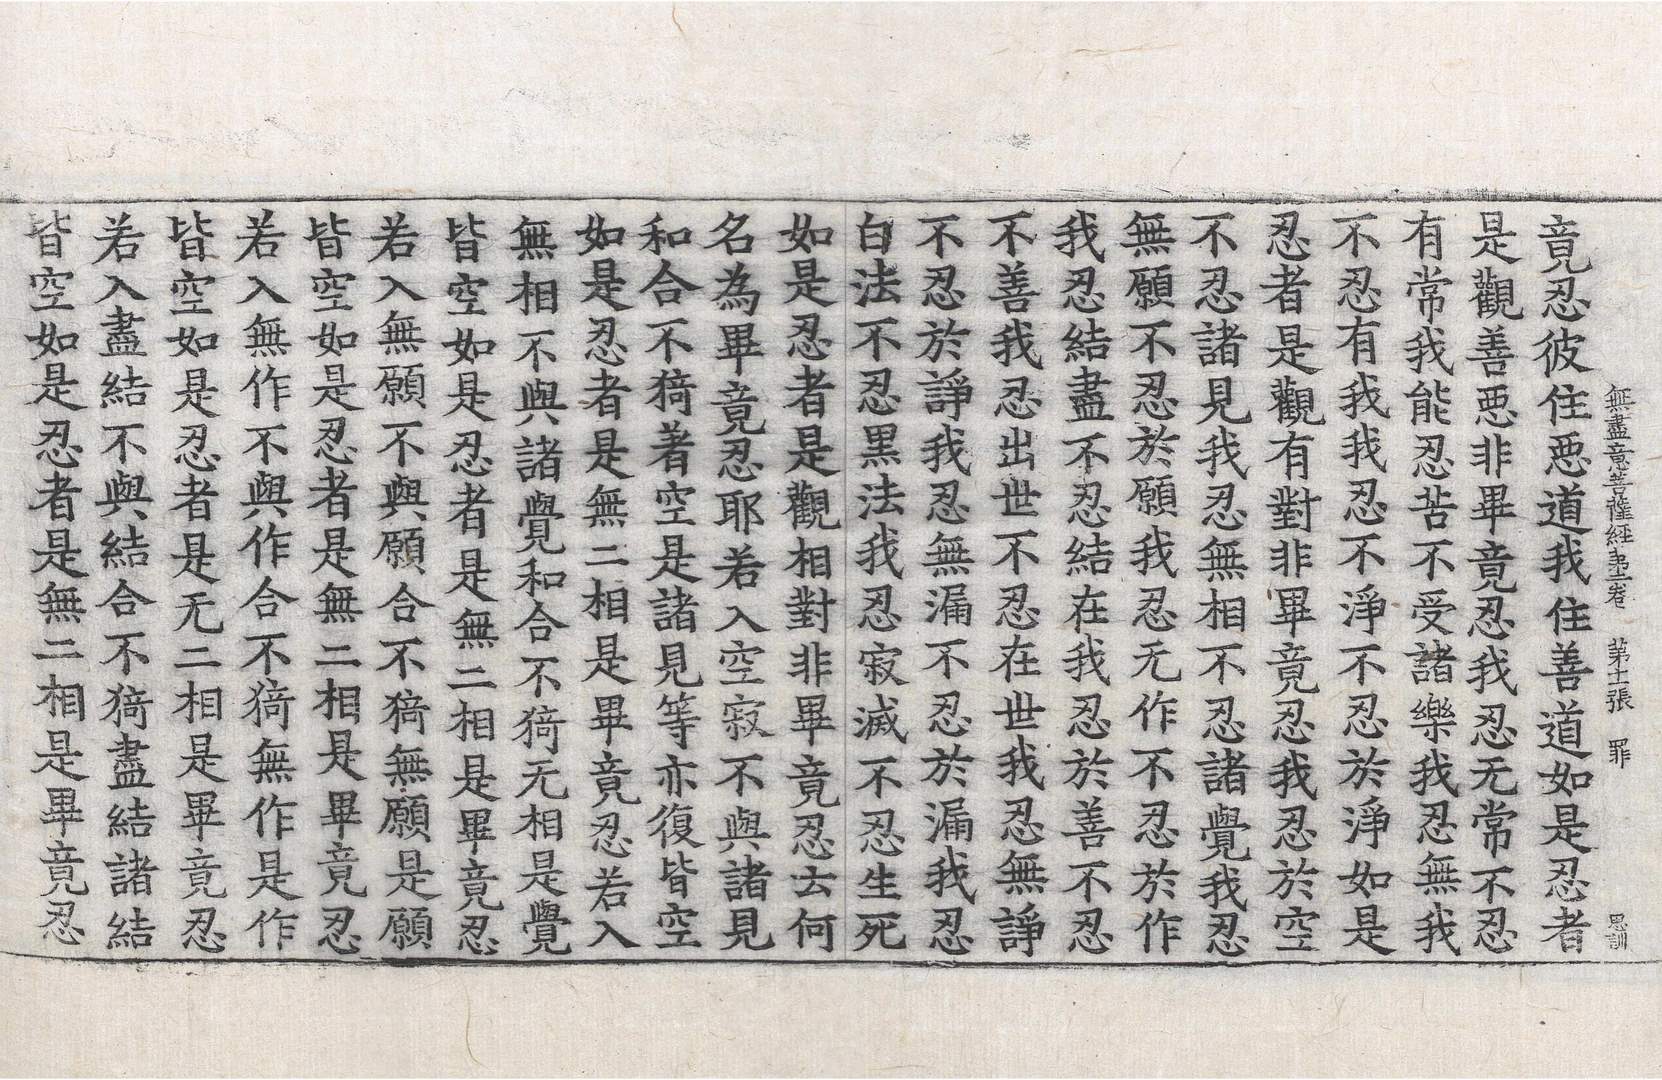 無盡意菩薩經第二卷 第十一張 罪 恩訓
竟忍彼住悪道我住善道如是忍者
是觀善悪非畢竟忍我忍无常不忍
有常我能忍苦不受諸樂我忍無我
不忍有我我忍不淨不忍於淨如是
忍者是觀有對非畢竟忍我忍於空
不忍諸見我忍無相不忍諸覺我忍
無願不忍於願我忍无作不忍於作
我忍結盡不忍結在我忍於善不忍
不善我忍出世不忍在世我忍無諍
不忍於諍我忍無漏不忍於漏我忍
白法不忍黑法我忍寂滅不忍生死
如是忍者是觀相對非畢竟忍云何
名為畢竟忍耶若入空寂不與諸見
和合不猗著空是諸見等亦復皆空
如是忍者是無二相是畢竟忍若入
無相不與諸覺和合不猗无相是覺
皆空如是忍者是無二相是畢竟忍
若入無願不與願合不猗無願是願
皆空如是忍者是無二相是畢竟忍
若入無作不與作合不猗無作是作
皆空如是忍者是无二相是畢竟忍
若入盡結不與結合不猗盡結諸結
皆空如是忍者是無二相是畢竟忍